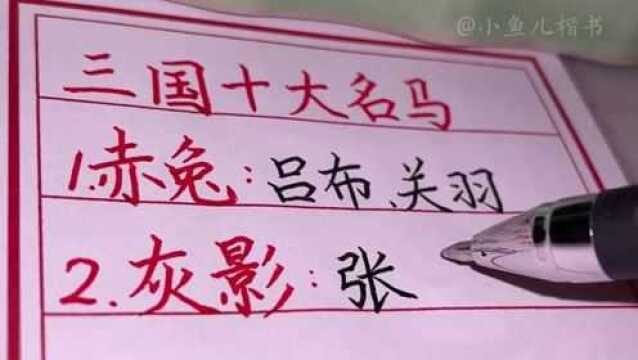 @小鱼儿楷书
三国十大名马
1.赤兔：吕布、关羽
2.灰影：张